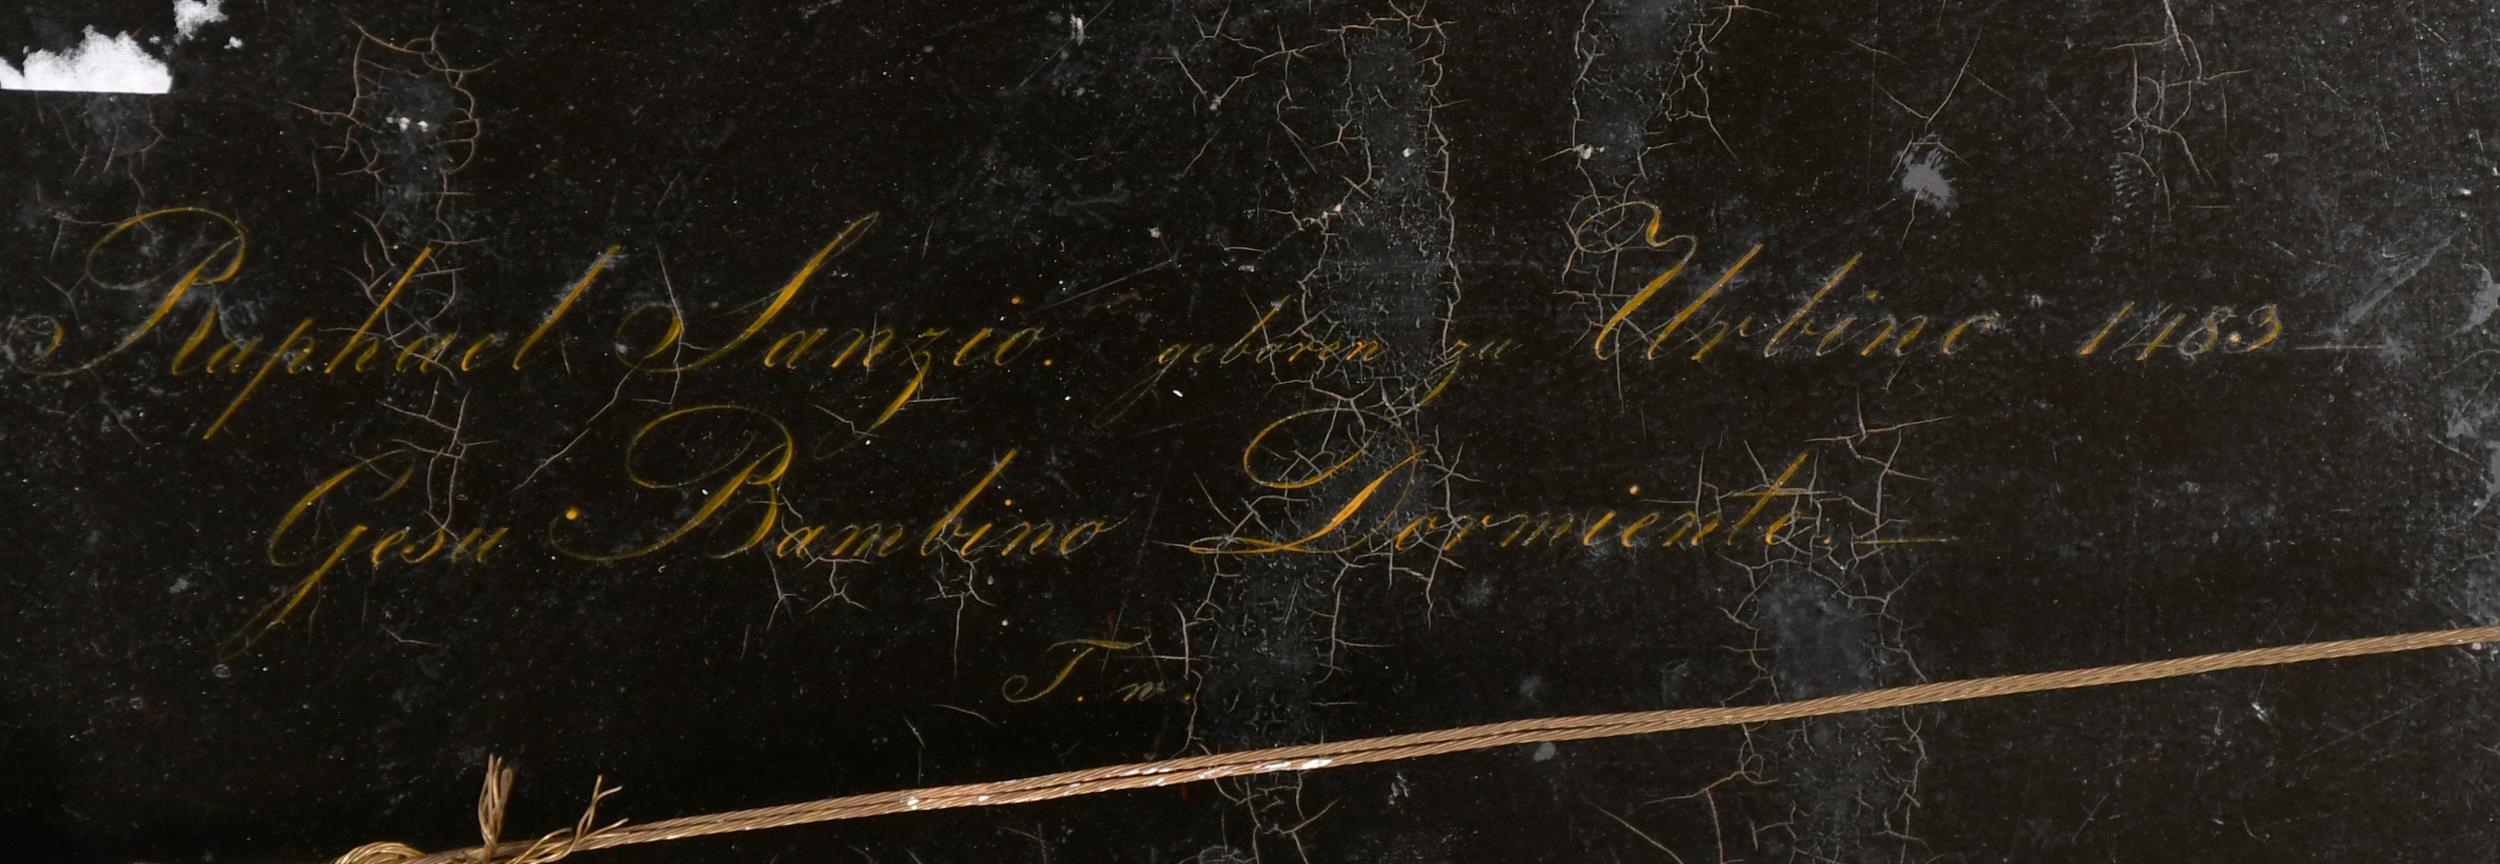 Raphael Sanzio. geboren zu Urbino 1483 —
Gesu Bambino Dormiente. —
T. w.